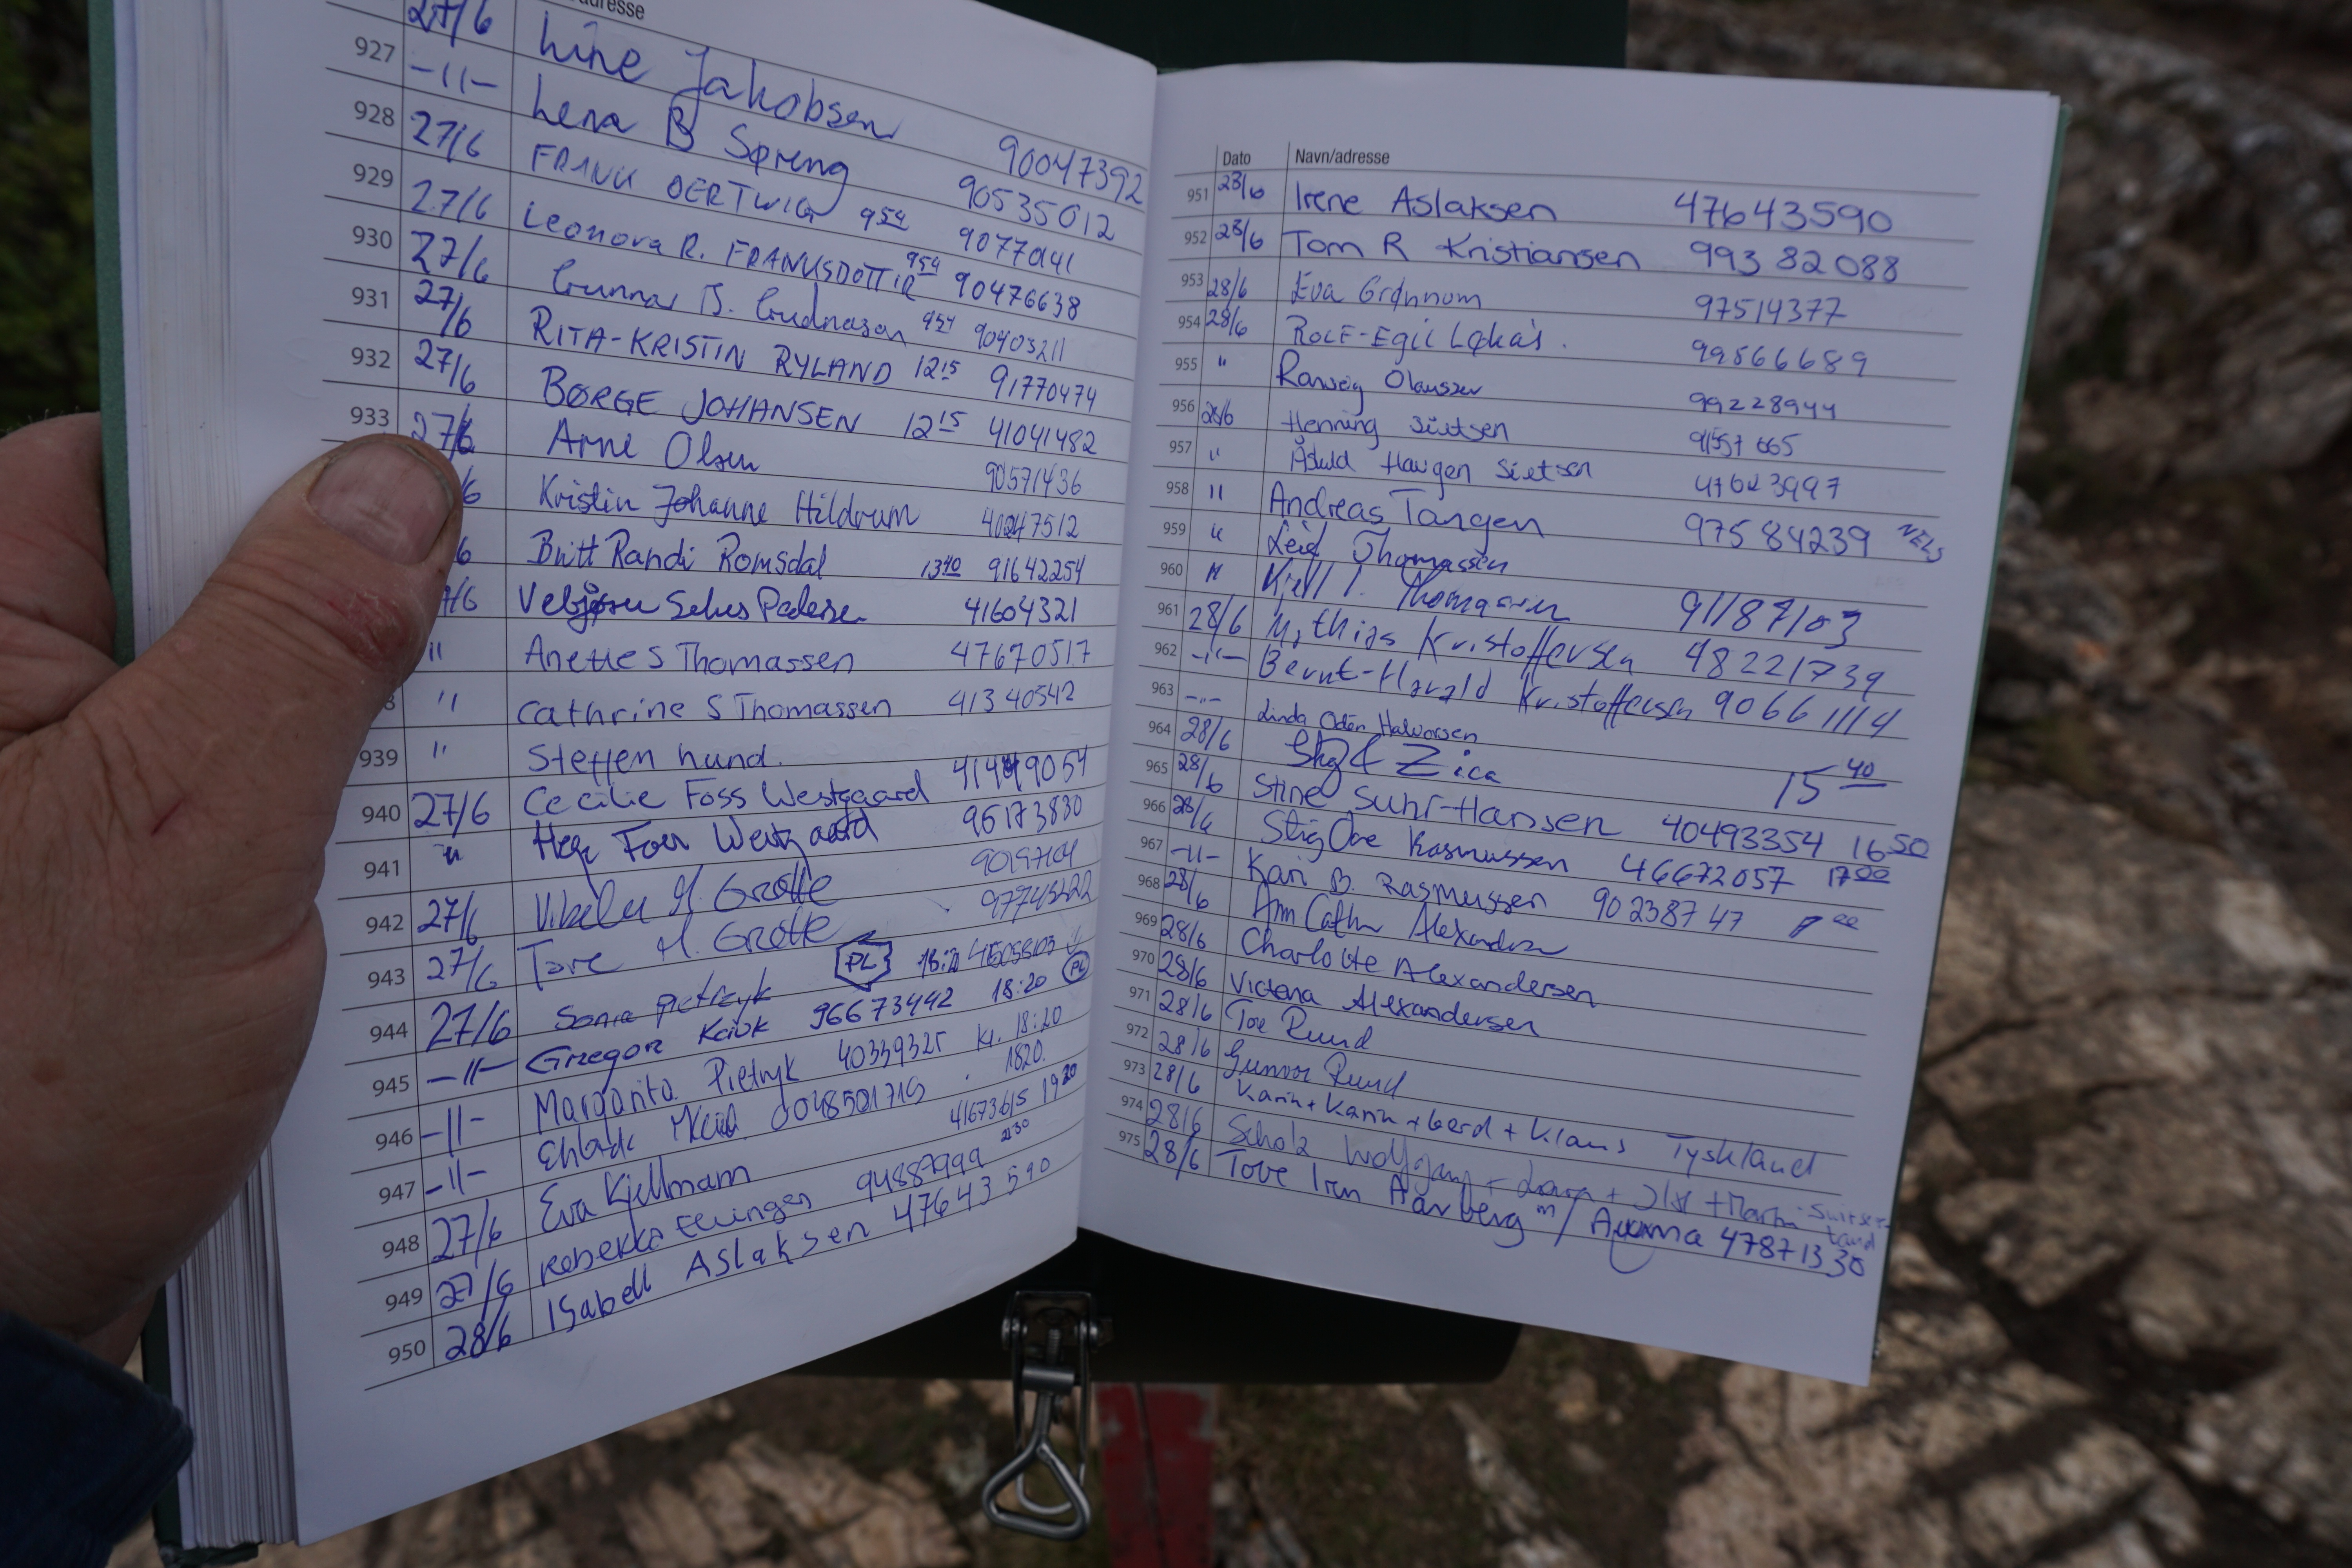 adresse
27/6 Line Jakobsen 90047392
927 -11- Lena B Spreng 90535012
928 27/6 FRANK OERTWIG 9 54 9077041
929 27/6 Leonora R. FRANKSDOTTIR 954 90476638
930 27/6 Gunnar B. Gudnason 954 90403211
931 27/6 RITA-KRISTIN RYLAND 12 15 91770474
932 27/6 BØRGE JOHANSEN 12 15 41041482
933 27/6 Arne Olsen 90571436
6 Kristin Johanne Hildrum 40247512
6 Britt Randi Romsdal 13 40 91642254
7/6 Vebjørn Pedersen 41604321
" Anette S Thomassen 47670517
8 " Cathrine S Thomassen 41340542
939 " Steffen hund.
940 27/6 Cecilie Foss Westgaard
941 " Foss Westgaard 95173830
942 27/6 M. Grøtte
943 27/6 Tore M. Grøtte
944 27/6 Sonia Pietrzyk PL
945 -11- Grzegorz 96673442 18:20 PL
946 -11- Margarita Pietrzyk 40339325 kl. 18:20
947 -11- 1820.
948 27/6 Eva Kjellmann 41673615 19 20
949 27/6 Rebekka Ellingsen 94887999 21 30
950 28/6 Isabell Aslaksen 47643590
Dato Navn/adresse
951 28/6 Irene Aslaksen 47643590
952 28/6 Tom R Kristiansen 993 82 088
953 28/6 Eva Grønnum 97514377
954 28/6 ROLF-EGIL Løkås. 99566689
955 " Ranveig Olaussen 99228944
956 28/6 Henning Sietsen
957 " Haugen Sietsen 47623997
958 " Andreas Tangen 975 84239 NELS
959 " Leif Thomassen
960 " Kjell I. Thomassen 91187103
961 28/6 Mathias Kristoffersen 48221739
962 -"- Bernt-Harald Kristoffersen 90661114
963 -"- Linda Odén Halvorsen
964 28/6 Stig & Zica 15 40
965 28/6 Stine Suhr-Hansen 40493354 16 50
966 28/6 Stig Ove Rasmussen 46672057 17 00
967 -11- Kari B. Rasmussen 90238747
968 28/6 Ann Cathrin Alexandersen
969 28/6 Charlotte Alexandersen
970 28/6 Victoria Alexandersen
971 28/6 Tor Ruud
972 28/6 Gunvor Ruud
973 28/6 Karin + Karin + Gerd + Klaus Tyskland
974 28/6 Scholz Wolfgang + + +
975 28/6 Tove Iren Aarberg m/ 47871330